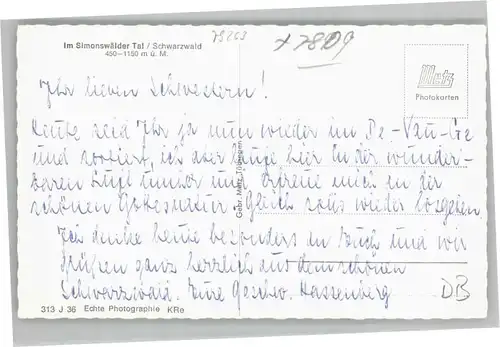 79263
x 7809
Im Simonswälder Tal / Schwarzwald
450–1150 m ü. M.
Metz
Photokarten
Ihr lieben Schwestern!
Heute seid Ihr ja nun wieder im De-Vau-Ge
und rotiert, ich aber liege hier in der wunder-
baren Luft und erfreue mich an der
schönen Gottesnatur. Gleich solls wieder losgehen.
Ich denke heute besonders an Euch und wir
grüßen ganz herzlich aus dem schönen
Schwarzwald. Eure Geschw. Hassenberg
DB
Gebr. Metz, Tübingen
313 J 36 Echte Photographie KRe